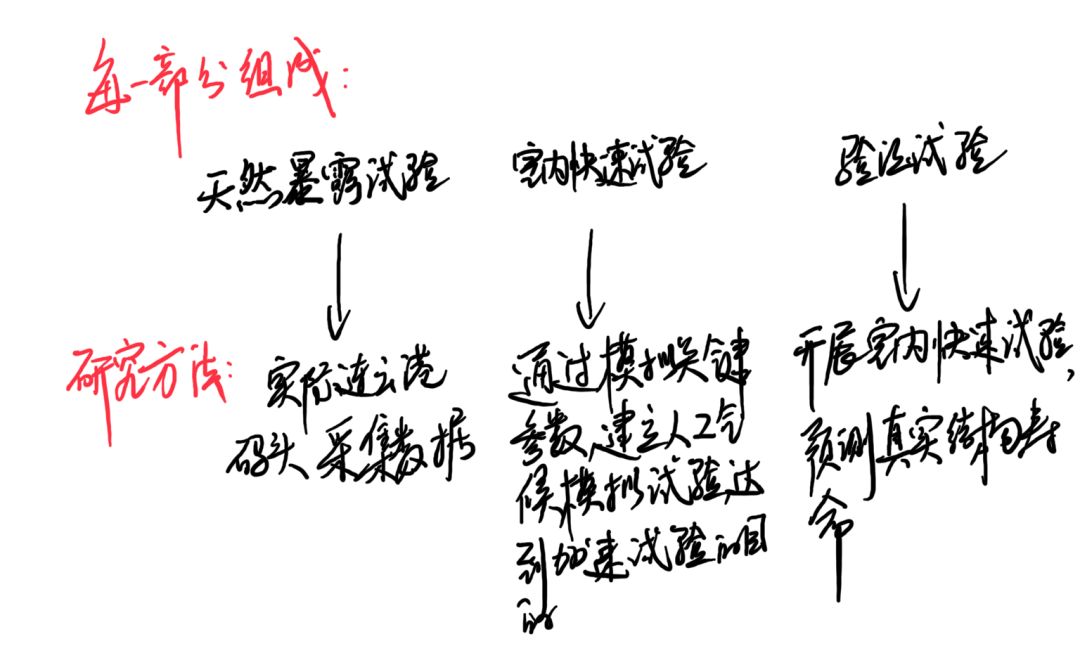 每一部分组成:
天然暴露试验
室内快速试验
验证试验
研究方法:
实际连云港
码头采集数据
通过模拟关键
参数,建立人工气
候模拟试验,达
到加速试验的目
的
开展室内快速试验,
预测真实结构寿
命